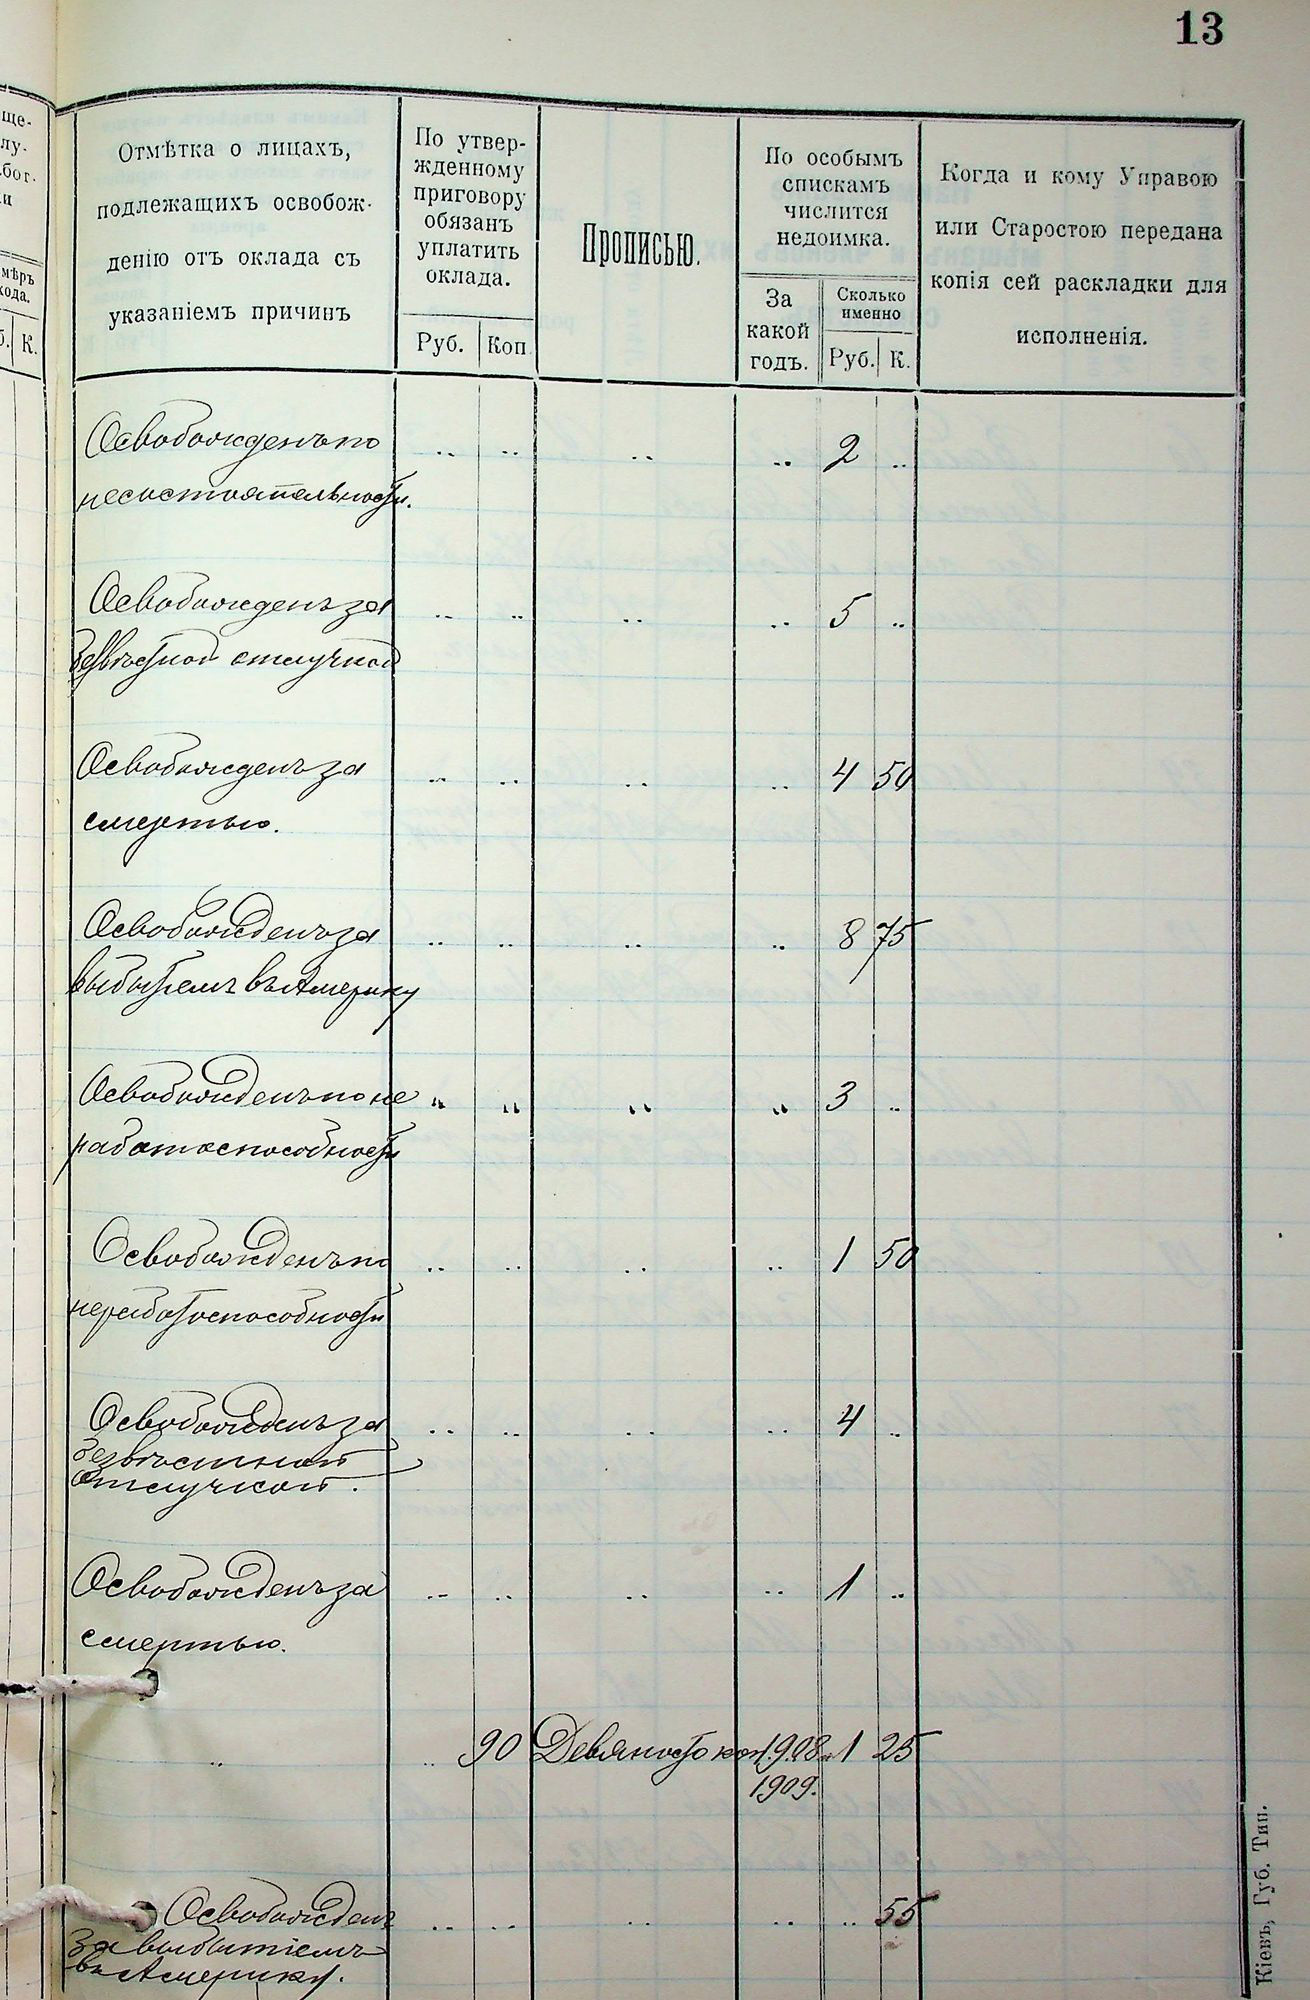 13
ще-
лу-
бог-
и
мѣръ
хода.
б. К.
Отмѣтка о лицахъ,
подлежащихъ освобож-
денію отъ оклада съ
указаніемъ причинъ
По утвер-
жденному
приговору
обязанъ
уплатить
оклада.
Руб. Коп.
Прописью.
По особымъ
спискамъ
числится
недоимка.
За
какой
годъ.
Сколько
именно
Руб. К.
Когда и кому Управою
или Старостою передана
копія сей раскладки для
исполненія.
Освобожденъ по .. .. .. .. 2 ..
несостоятельности.
Освобожденъ за .. .. .. .. 5 ..
безвѣстной отлучкой
Освобожденъ за .. .. .. .. 4 50
смертью.
Освобожденъ за .. .. .. .. 8 75
выбытіемъ въ Америку
Освобожденъ по не „ „ „ „ 3 ..
работоспособности
Освобожденъ по .. .. .. .. 1 50
неработоспособности
Освобожденъ за .. .. .. .. 4 ..
безвѣстной
отлучкой.
Освобожденъ за .. .. .. .. 1 ..
смертью.
.. .. 90 Девяносто коп. 1908 и 1 25
1909.
Освобожденъ .. .. .. .. .. 55
за выбытіемъ
въ Америку.
Кіевъ, Губ. Тип.